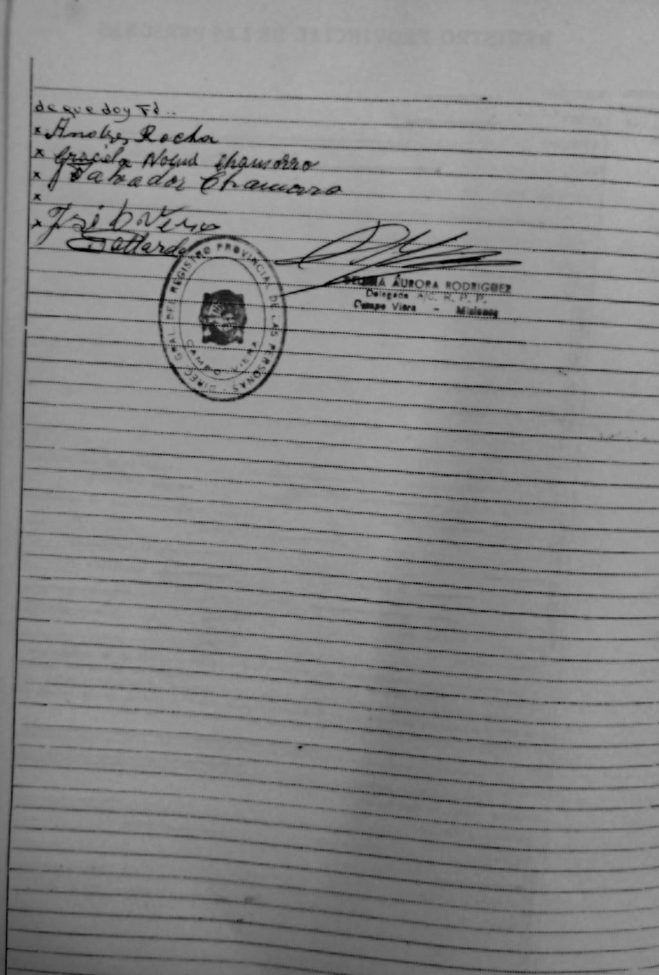 de que doy Fé..
x Andres Rocha
x Graciela Noemi Chamorro
x Salvador Chamorro
x
x
Gallardo
DIREC. GRAL. DEL REGISTRO PROVINCIAL DE LAS PERSONAS
CAMPO VIERA
AURORA RODRIGUEZ
Delegada A/C. R. P. P.
Campo Viera - Misiones